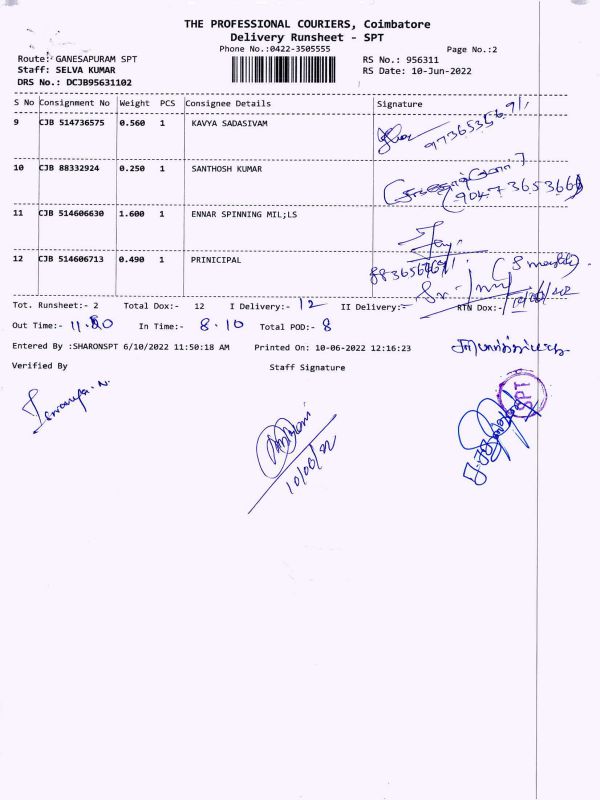 THE PROFESSIONAL COURIERS, Coimbatore
Delivery Runsheet - SPT
Phone No.:0422-3505555
Page No.:2
Route:- GANESAPURAM SPT
RS No.: 956311
Staff: SELVA KUMAR
RS Date: 10-Jun-2022
DRS No.: DCJB95631102
S No Consignment No Weight PCS Consignee Details Signature
9 CJB 514736575 0.560 1 KAVYA SADASIVAM
10 CJB 88332924 0.250 1 SANTHOSH KUMAR
11 CJB 514606630 1.600 1 ENNAR SPINNING MIL;LS
12 CJB 514606713 0.490 1 PRINICIPAL
Tot. Runsheet:- 2 Total Dox:- 12 I Delivery:- 12 II Delivery:- RTN Dox:-
10/06/22
Out Time:- In Time:- 8.10 Total POD:- 8
Entered By :SHARONSPT 6/10/2022 11:50:18 AM Printed On: 10-06-2022 12:16:23
Verified By Staff Signature
SPT
10/06/22